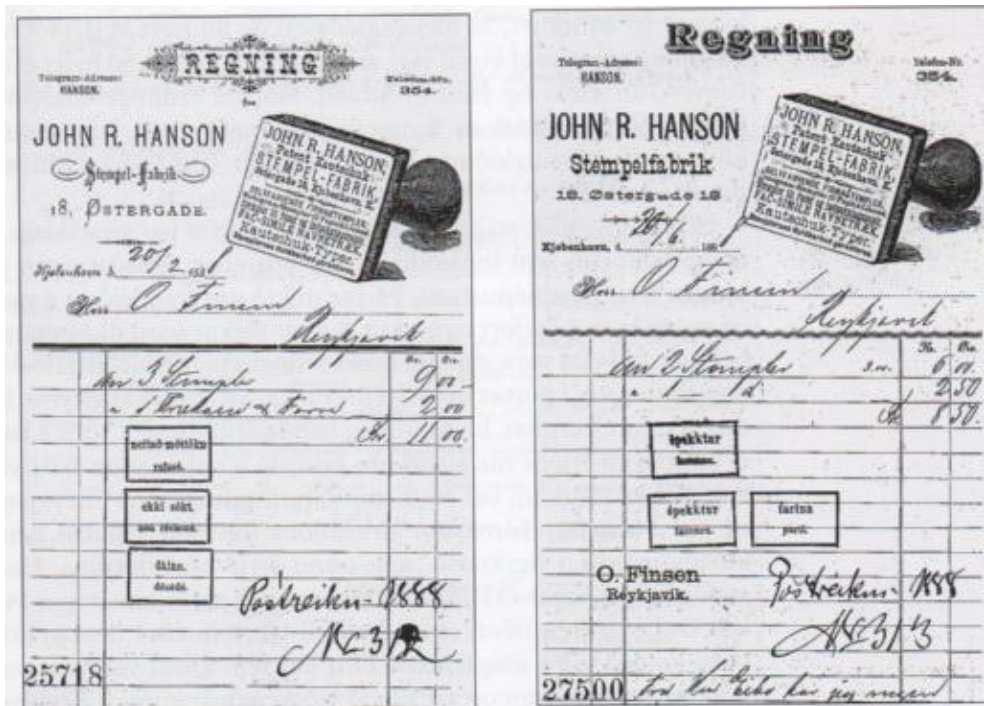 REGNING
Telegram-Adresse:
HANSON.
Telefon-Nr.
354.
fra
JOHN R. HANSON
Stempel-Fabrik
18, ØSTERGADE.
JOHN R. HANSON,
Patent Kautschuk-
STEMPEL-FABRIK,
Østergade 18, Kjøbenhavn, K.
SELVFARVENDE FORRETNINGSSTEMPLER,
FAC-SIMILE NAVNETRÆK,
Kautschuk-Typer.
Kjøbenhavn d. 20/2 188
Herr O Finsen
Reykjavik
Kr. Øre.
An 3 Stempler 9 00
2 00
Kr 11 00.
neitað móttöku
refusé.
ekki sótt.
non réclamé.
dáinn.
décédé.
Póstreikn. 1888
No 312
25718
Regning
Telegram-Adresse:
HANSON.
Telefon-Nr.
354.
JOHN R. HANSON
Stempelfabrik
18. Østergade 18
JOHN R. HANSON,
Patent Kautschuk-
STEMPEL-FABRIK,
Østergade 18, Kjøbenhavn, K.
SELVFARVENDE FORRETNINGSSTEMPLER,
FAC-SIMILE NAVNETRÆK,
Kautschuk-Typer.
Kjøbenhavn, d. 20/6 188
Herr O Finsen
Reykjavik
Kr. Øre
An 2 Stempler 6 00.
" 1 d. 2 50
Kr 8 50.
óþekktur
inconnu.
óþekktur
inconnu.
farinn
parti.
O. Finsen
Reykjavik.
Póstreikn. 1888
No 313
27500 har jeg